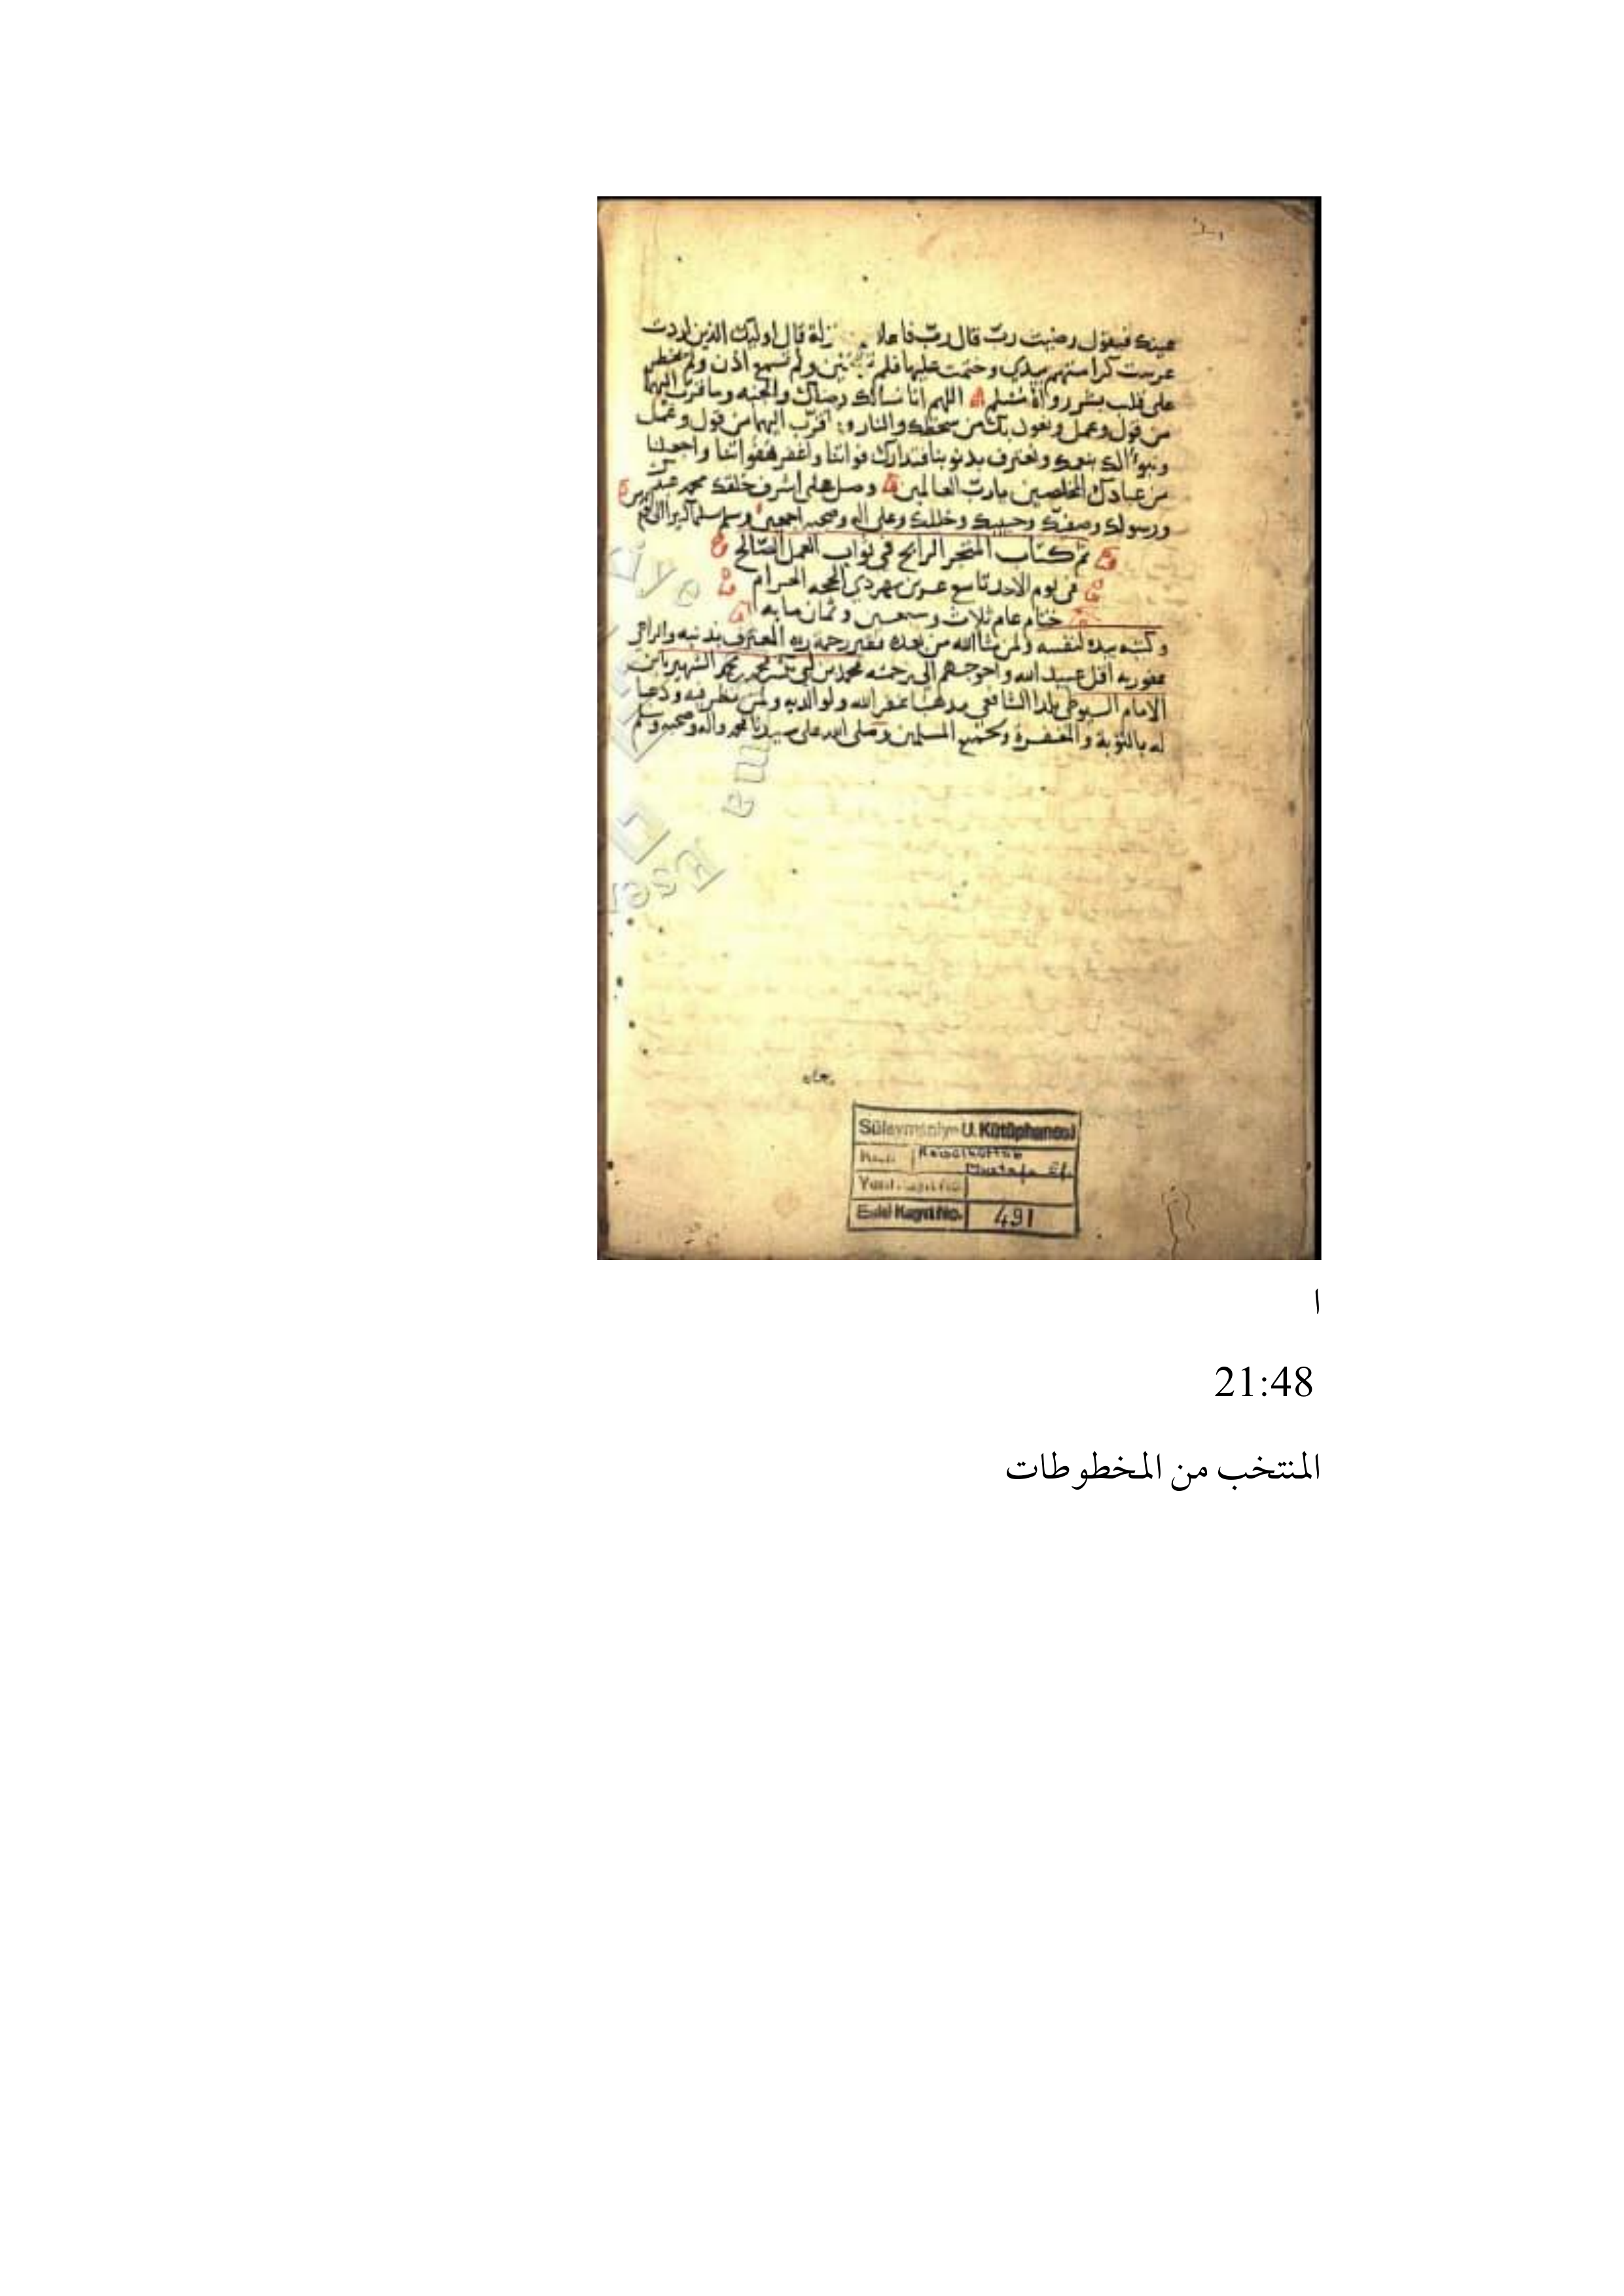 عينك فيقول رضيت رب قال رب فاعلا زلة قال اوليك الذين اردت
غرست كرامتهم بيدي وختمت عليها فلم عين ولم تسمع اذن ولم يخطر
على قلب بشر رواه مسلم اللهم انا نسالك رضاك والجنه وما قرب اليهما
من قول وعمل ونعوذ بك من سخطك والنار وما قرب اليهما من قول وعمل
ونبوا لك بنعمك ونعترف بذنوبنا فتدارك فواتنا واغفر هفواتنا واجعلنا
من عبادك المخلصين يا رب العالمين وصل على اشرف خلقك محمد عبدك
ورسولك وصفيك وحبيبك وخليلك وعلى اله وصحبه اجمعين وسلم تسليما كثيرا
تم كتاب المتجر الرابح في ثواب العمل الصالح
في يوم الاحد تاسع عشر شهر ذي الحجه الحرام
ختام عام ثلاث وسبعين وثمان مايه
وكتبه بيده لنفسه ولمن شا الله من بعده فقير رحمة ربه المعترف بذنبه والراجي
عفو ربه اقل عبيد الله واحوجهم الى رحمته محمد بن ابي بكر بن محمد الشهير بابن
الامام السيوطي بلدا الشافعي مذهبا غفر الله له ولوالديه ولمن نظر فيه ودعا
له بالتوبة والمغفرة ولجميع المسلمين وصلى الله على سيدنا محمد واله وصحبه وسلم
Süleymaniye U. Kütüphanesi
Reisülküttab
Mustafa Ef.
Eski Kayıt No. 491
ا
21:48
المنتخب من المخطوطات